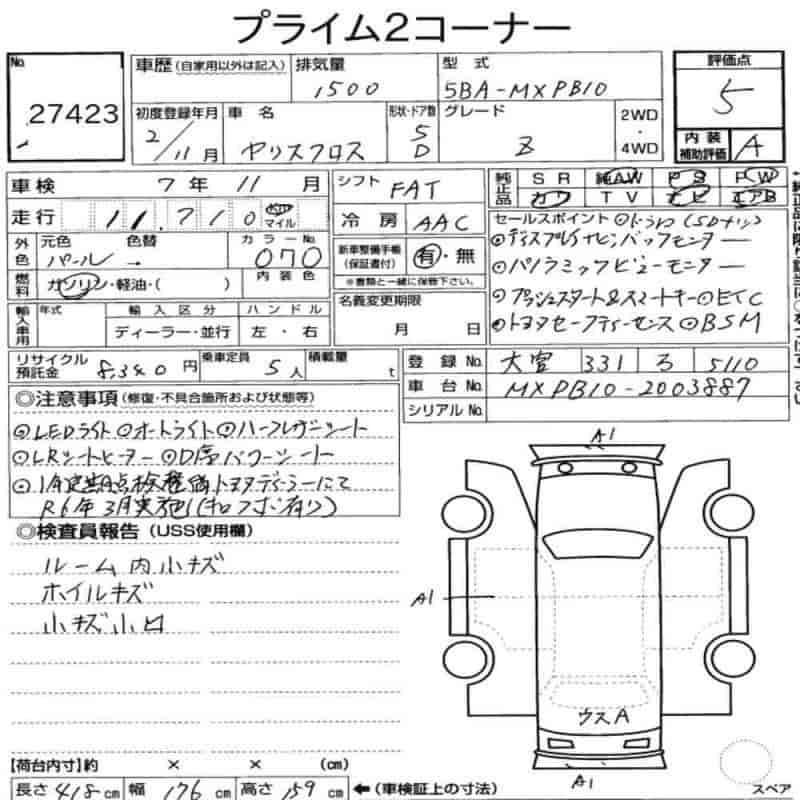 プライム2コーナー
No. 27423
車歴 (自家用以外は記入) 排気量 1500 型式 5BA-MXPB10
評価点 5
初度登録年月 2/11月 車名 ヤリスクロス 形状・ドア数 5D グレード Z 2WD・4WD
内装補助評価 A
車検 7年 11月 シフト FAT
純正品 SR 純AW PS PW
カワ TV ナビ エアB
走行 11,710 km マイル 冷房 AAC
外色 元色 パール 色替 色 カラーNo. 070
新車整備手帳 (保証書付) 有・無
※書類と一緒に保管下さい。
燃料 ガソリン・軽油・( ) 内装色
名義変更期限 月 日
輸入車用 年式 輸入区分 ディーラー・並行 ハンドル 左・右
セールスポイント ⊙ドラレコ(SDナシ)
⊙ディスプレイナビ バックモニター
⊙パノラミックビューモニター
⊙プッシュスタート&スマートキー ⊙ETC
⊙トヨタセーフティーセンス ⊙BSM
リサイクル預託金 8,340円 乗車定員 5人 積載量 t
登録No. 大宮 331 ろ 5110
車台No. MXPB10-2003887
シリアルNo.
◎注意事項 (修復・不具合箇所および状態等)
⊙LEDライト ⊙オートライト ⊙ハーフレザーシート
⊙LRシートヒーター ⊙D席パワーシート
⊙1年定期点検整備トヨタディーラーにて
R6年3月実施(キロフダ有り)
◎検査員報告 (USS使用欄)
ルーム内小キズ
ホイルキズ
小キズ小凹
A1
A1
ウスA
A1
スペア
【荷台内寸】約 × × (cm)
長さ 418 cm 幅 176 cm 高さ 159 cm ←(車検証上の寸法)